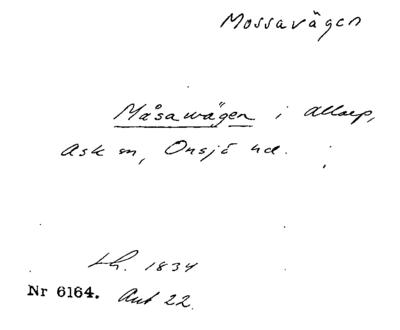 Mossavägen
Måsawägen i Allarp,
Ask sn, Onsjö hd.
Lh. 1834
Nr 6164. Aut 22.